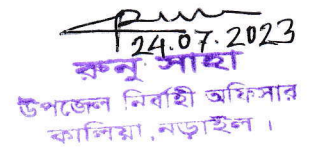 24.07.2023
রুনু সাহা
উপজেলা নির্বাহী অফিসার
কালিয়া, নড়াইল ।